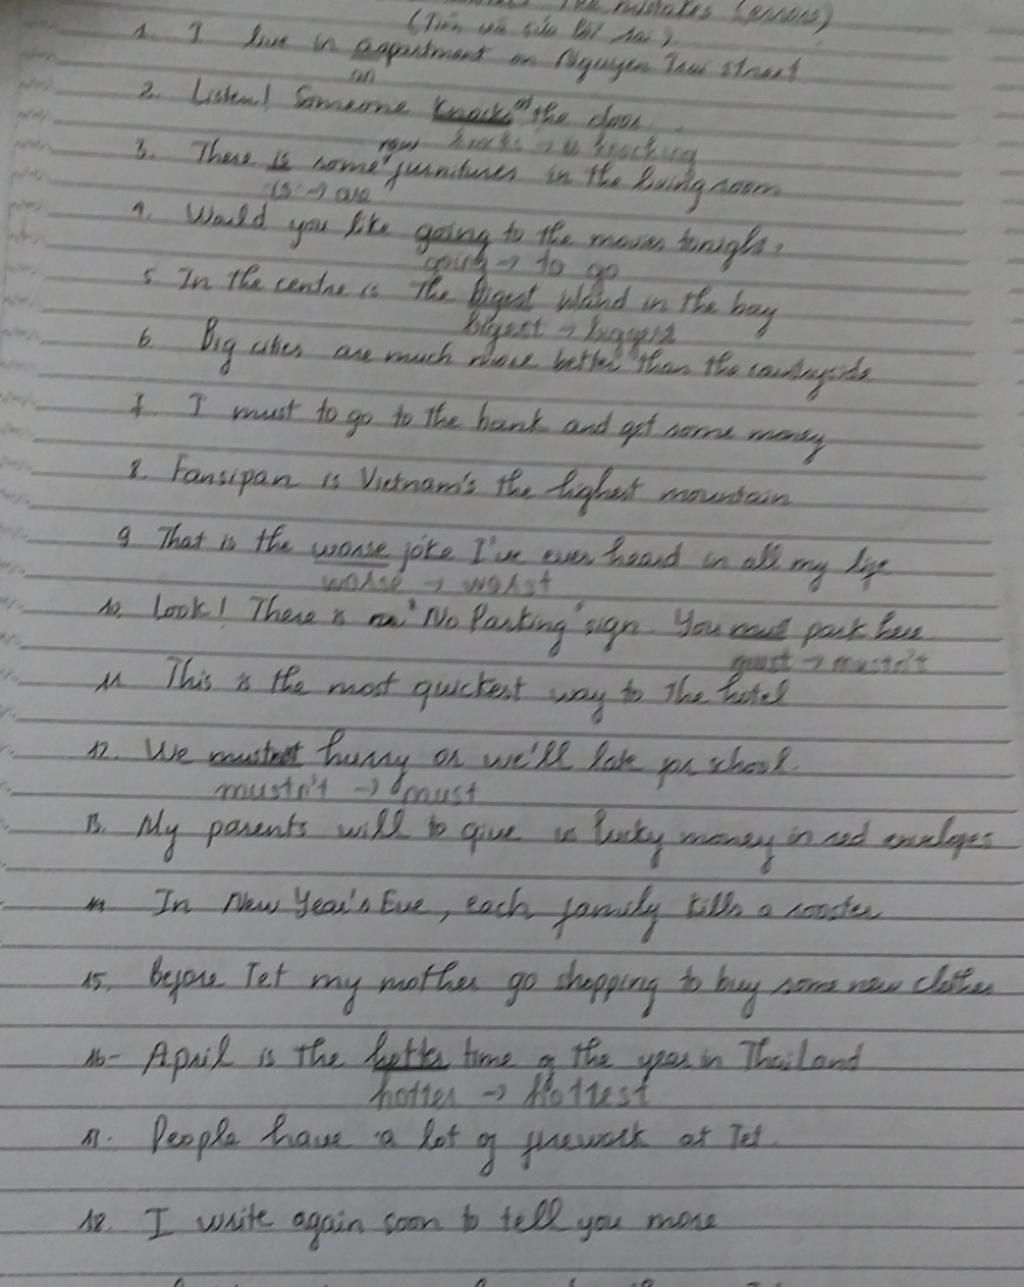 the mistakes (errors)
(Tìm và sửa lỗi sai).
1. I live in a apartment on Nguyen Trai street
an
2. Listen! Someone knocks at the door.
knocks → is knocking
3. There is some new furnitures in the living room
is → are
4. Would you like going to the movies tonight?
going → to go
5. In the centre is the bigest island in the bay
bigest → biggest
6. Big cities are much more better than the countryside
7. I must to go to the bank and get some money
8. Fansipan is Vietnam's the highest mountain
9 That is the worse joke I've ever heard in all my life
worse → worst
10. Look! There is "No Parking" sign. You must park here
must → mustn't
11 This is the most quickest way to the hotel
12. We mustn't hurry or we'll late for school.
mustn't → must
13. My parents will to give us lucky money in red envelopes
14 In New Year's Eve, each family kills a rooster
15, Before Tet my mother go shopping to buy some new clothes
16- April is the hotter time of the year in Thailand
hotter → Hottest
17. People have a lot of firework at Tet.
18. I write again soon to tell you more